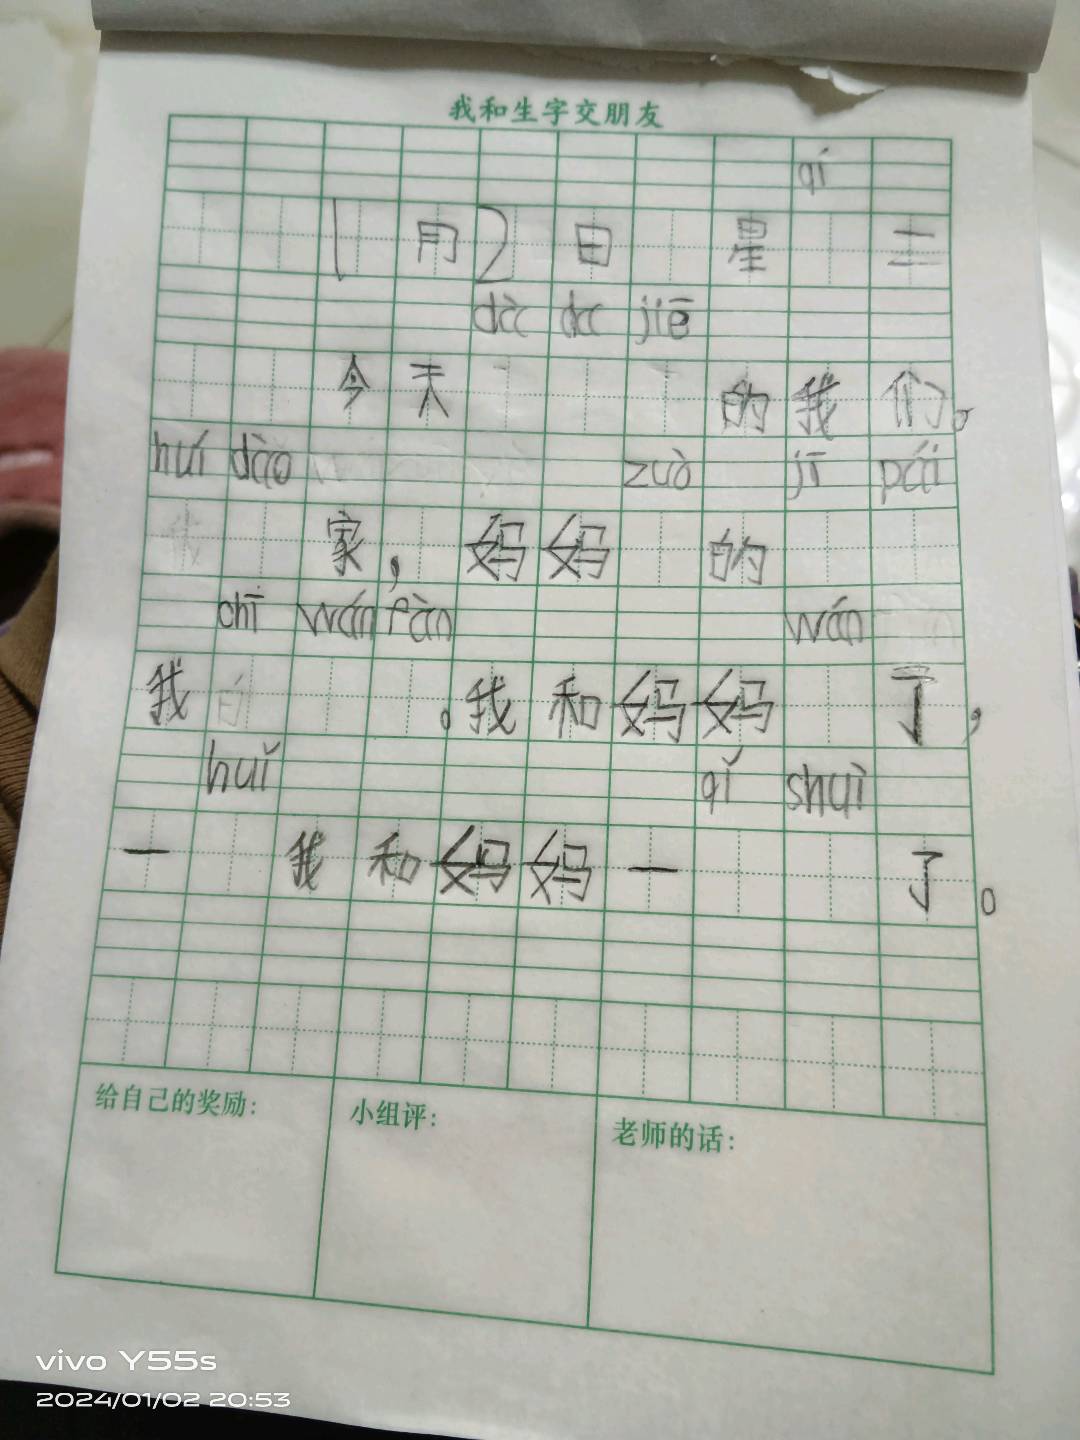 我和生字交朋友
qí
1月2日 星 三
jiē
今天 的我们。
huí dào zuò jī pái
家，妈妈 的
chī wán fàn wán
我 。我和妈妈 了，
huǐ qǐ shuì
一 我和妈妈一 了。
给自己的奖励：
小组评：
老师的话：
vivo Y55s
2024/01/02 20:53